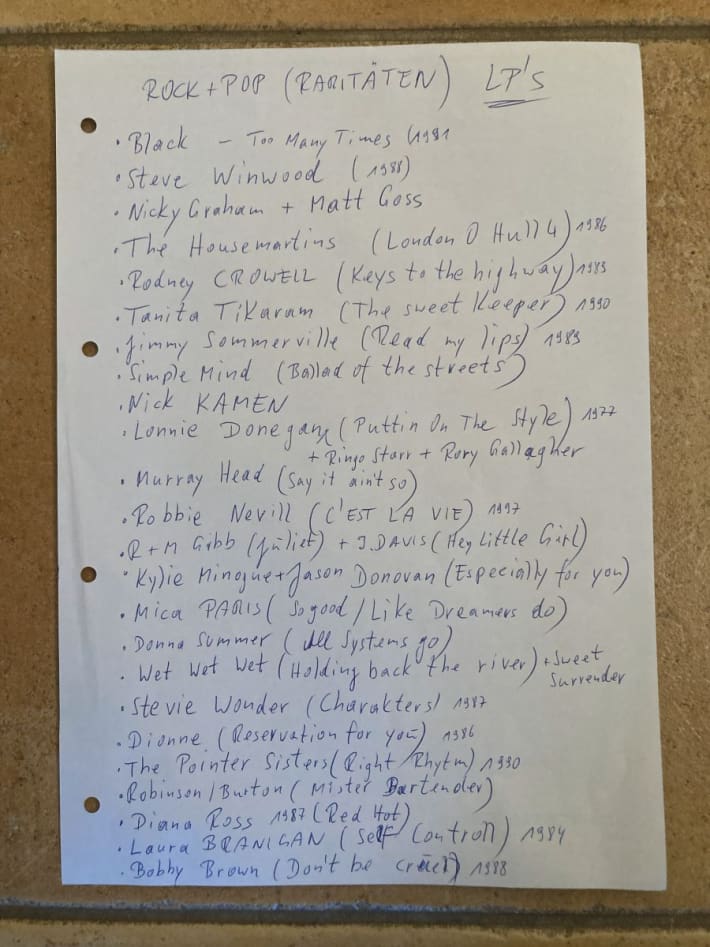 ROCK + POP (RARITÄTEN) LP'S
• Black – Too Many Times (1981
• Steve Winwood (1988)
• Nicky Graham + Matt Goss
• The Housemartins (London O Hull 4) 1986
• Rodney CROWELL (Keys to the highway) 1989
• Tanita TiKaram (The sweet Keeper) 1990
• Jimmy Sommerville (Read my lips) 1989
• Simple Mind (Ballad of the streets)
• Nick KAMEN
• Lonnie Donegan (Puttin On The Style) 1977
+ Ringo Starr + Rory Gallagher
• Murray Head (Say it ain't so)
• Robbie Nevill (C'EST LA VIE) 1997
• R + M Gibb (Juliet) + J. DAVIS (Hey Little Girl)
• Kylie Minogue + Jason Donovan (Especially for you)
• Mica PARIS (So good / Like Dreamers do)
• Donna Summer (All Systems go)
• Wet Wet Wet (Holding back the river) + Sweet
Surrender
• Stevie Wonder (Charakters) 1987
• Dionne (Reservation for you) 1986
• The Pointer Sisters (Right Rhytm) 1990
• Robinson / Burton (Mister Bartender)
• Diana Ross 1987 (Red Hot)
• Laura BRANIGAN (Self Controll) 1984
• Bobby Brown (Don't be cruel) 1988